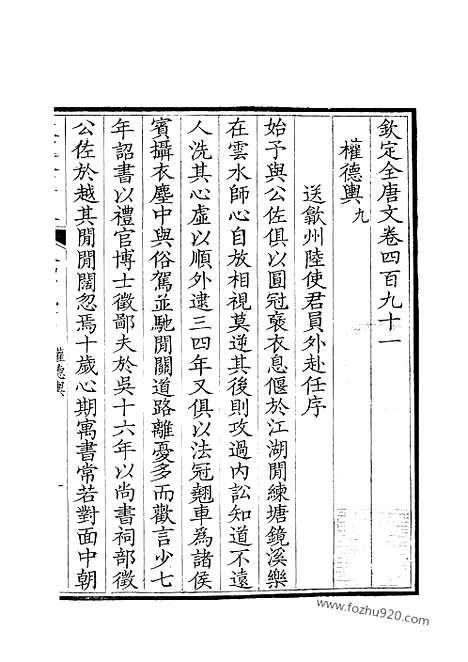 欽定全唐文卷四百九十一
權德輿九
送歙州陸使君員外赴任序
始予與公佐俱以圓冠裒衣息偃於江湖閒練塘鏡溪樂
在雲水師心自放相視莫逆其後則攻過內訟知道不遠
人洗其心虛以順外逮三四年又俱以法冠翹車爲諸侯
賓攝衣塵中與俗駕並馳閒關道路離憂多而歡言少七
年詔書以禮官博士徵鄙夫於吳十六年以尚書祠部徵
公佐於越其閒閒闊忽焉十歲心期寓書常若對面中朝
權德輿
一
www.fozhu920.com